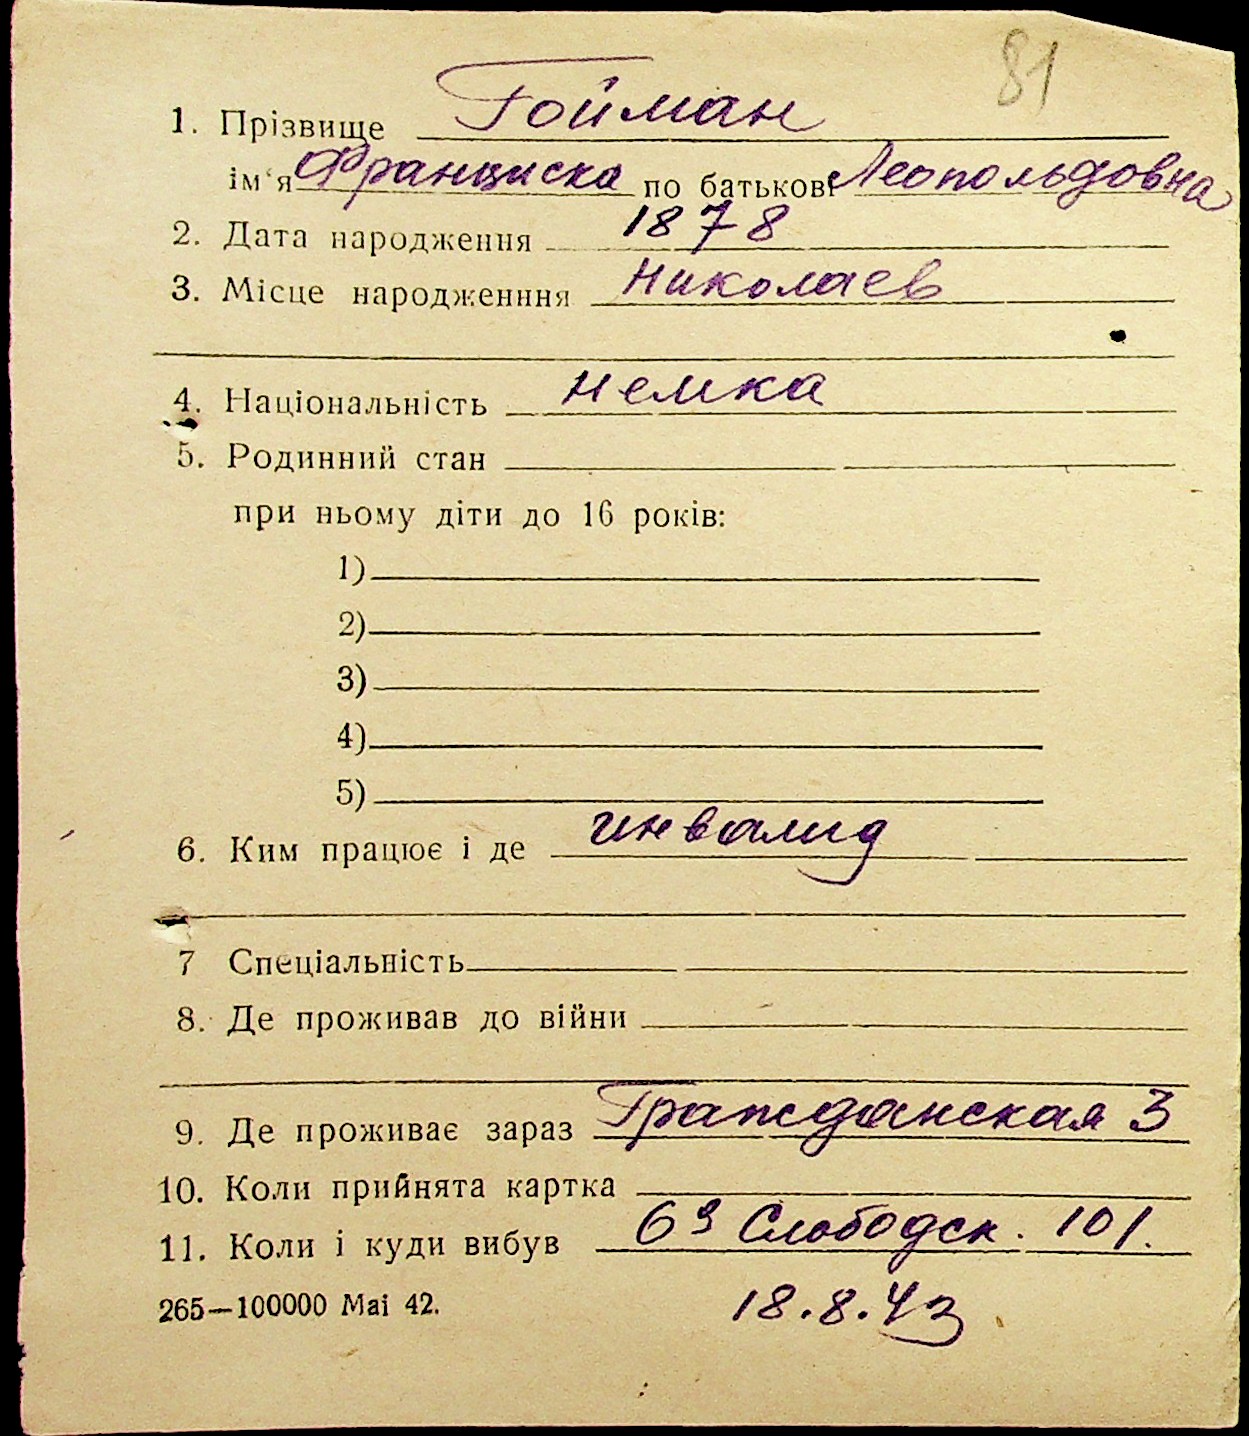 81
1. Прізвище Гойман
ім‘я Франциска по батькові Леопольдовна
2. Дата народження 1878
3. Місце народженння Николаев
4. Національність немка
5. Родинний стан
при ньому діти до 16 років:
1)
2)
3)
4)
5)
6. Ким працює і де инвалид
7 Спеціальність
8. Де проживав до війни
9. Де проживає зараз Гражданская 3
10. Коли прийнята картка
11. Коли і куди вибув 6я Слободск. 101.
265—100000 Mai 42.
18.8.43